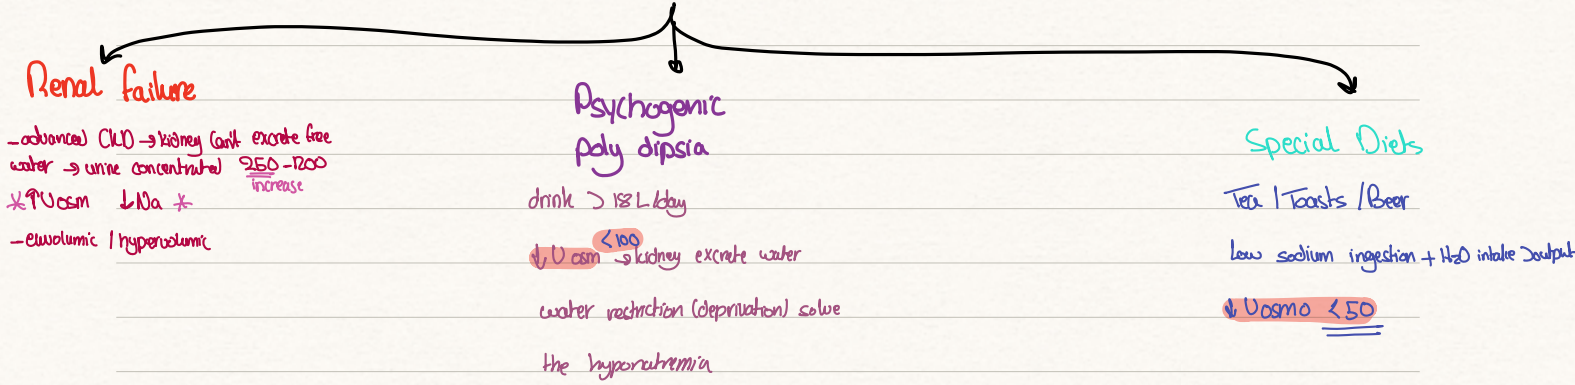 Renal failure
-advanced CKD → kidney can't excrete free
water → urine concentrated 250-1200
increase
*↑Uosm ↓Na *
-euvolumic / hypervolumic
Psychogenic
poly dipsia
drink > 18 L/day
<100
↓Uosm → kidney excrete water
water restriction (deprivation) solve
the hyponatremia
Special Diets
Tea / Toasts / Beer
Low sodium ingestion + H₂O intake >output
↓Uosmo <50